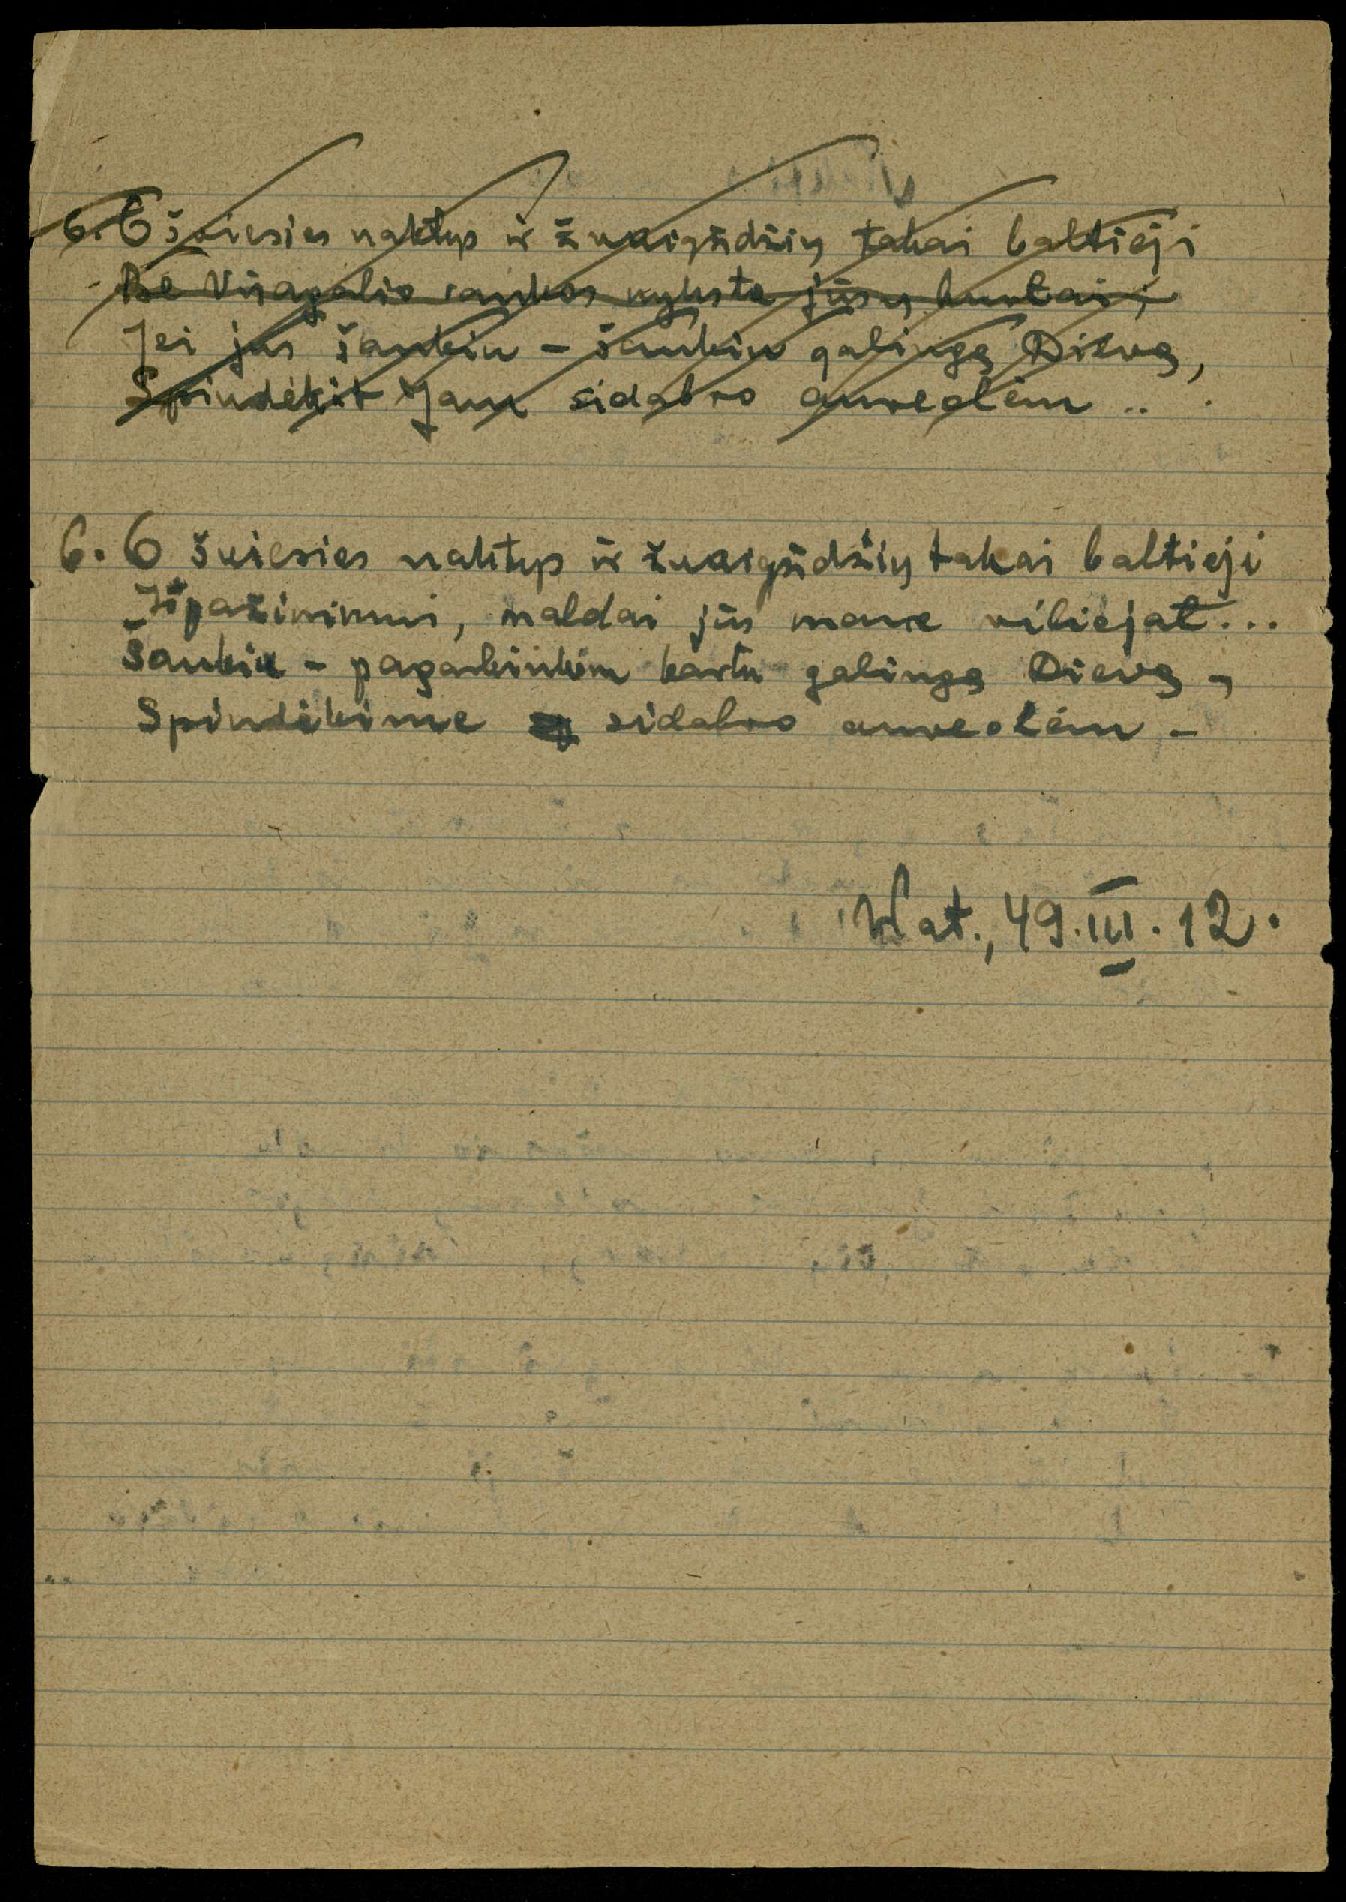 6. O šviesies naktys ir žvaigždžių takai baltieji
Be Visagalio rankos nyksta jūsų burtai;
Jei jus šaukiu – šaukiu galingą Dievą,
Spindėkit Jam sidabro aureolėm ..
6. O šviesies naktys ir žvaigždžių takai baltieji
Išpažinimui, maldai jūs mane viliojat...
Šaukiu – pagarbinkim kartu galingą Dievą –
Spindėkime sidabro aureolėm –
Wat., 49.III.12.